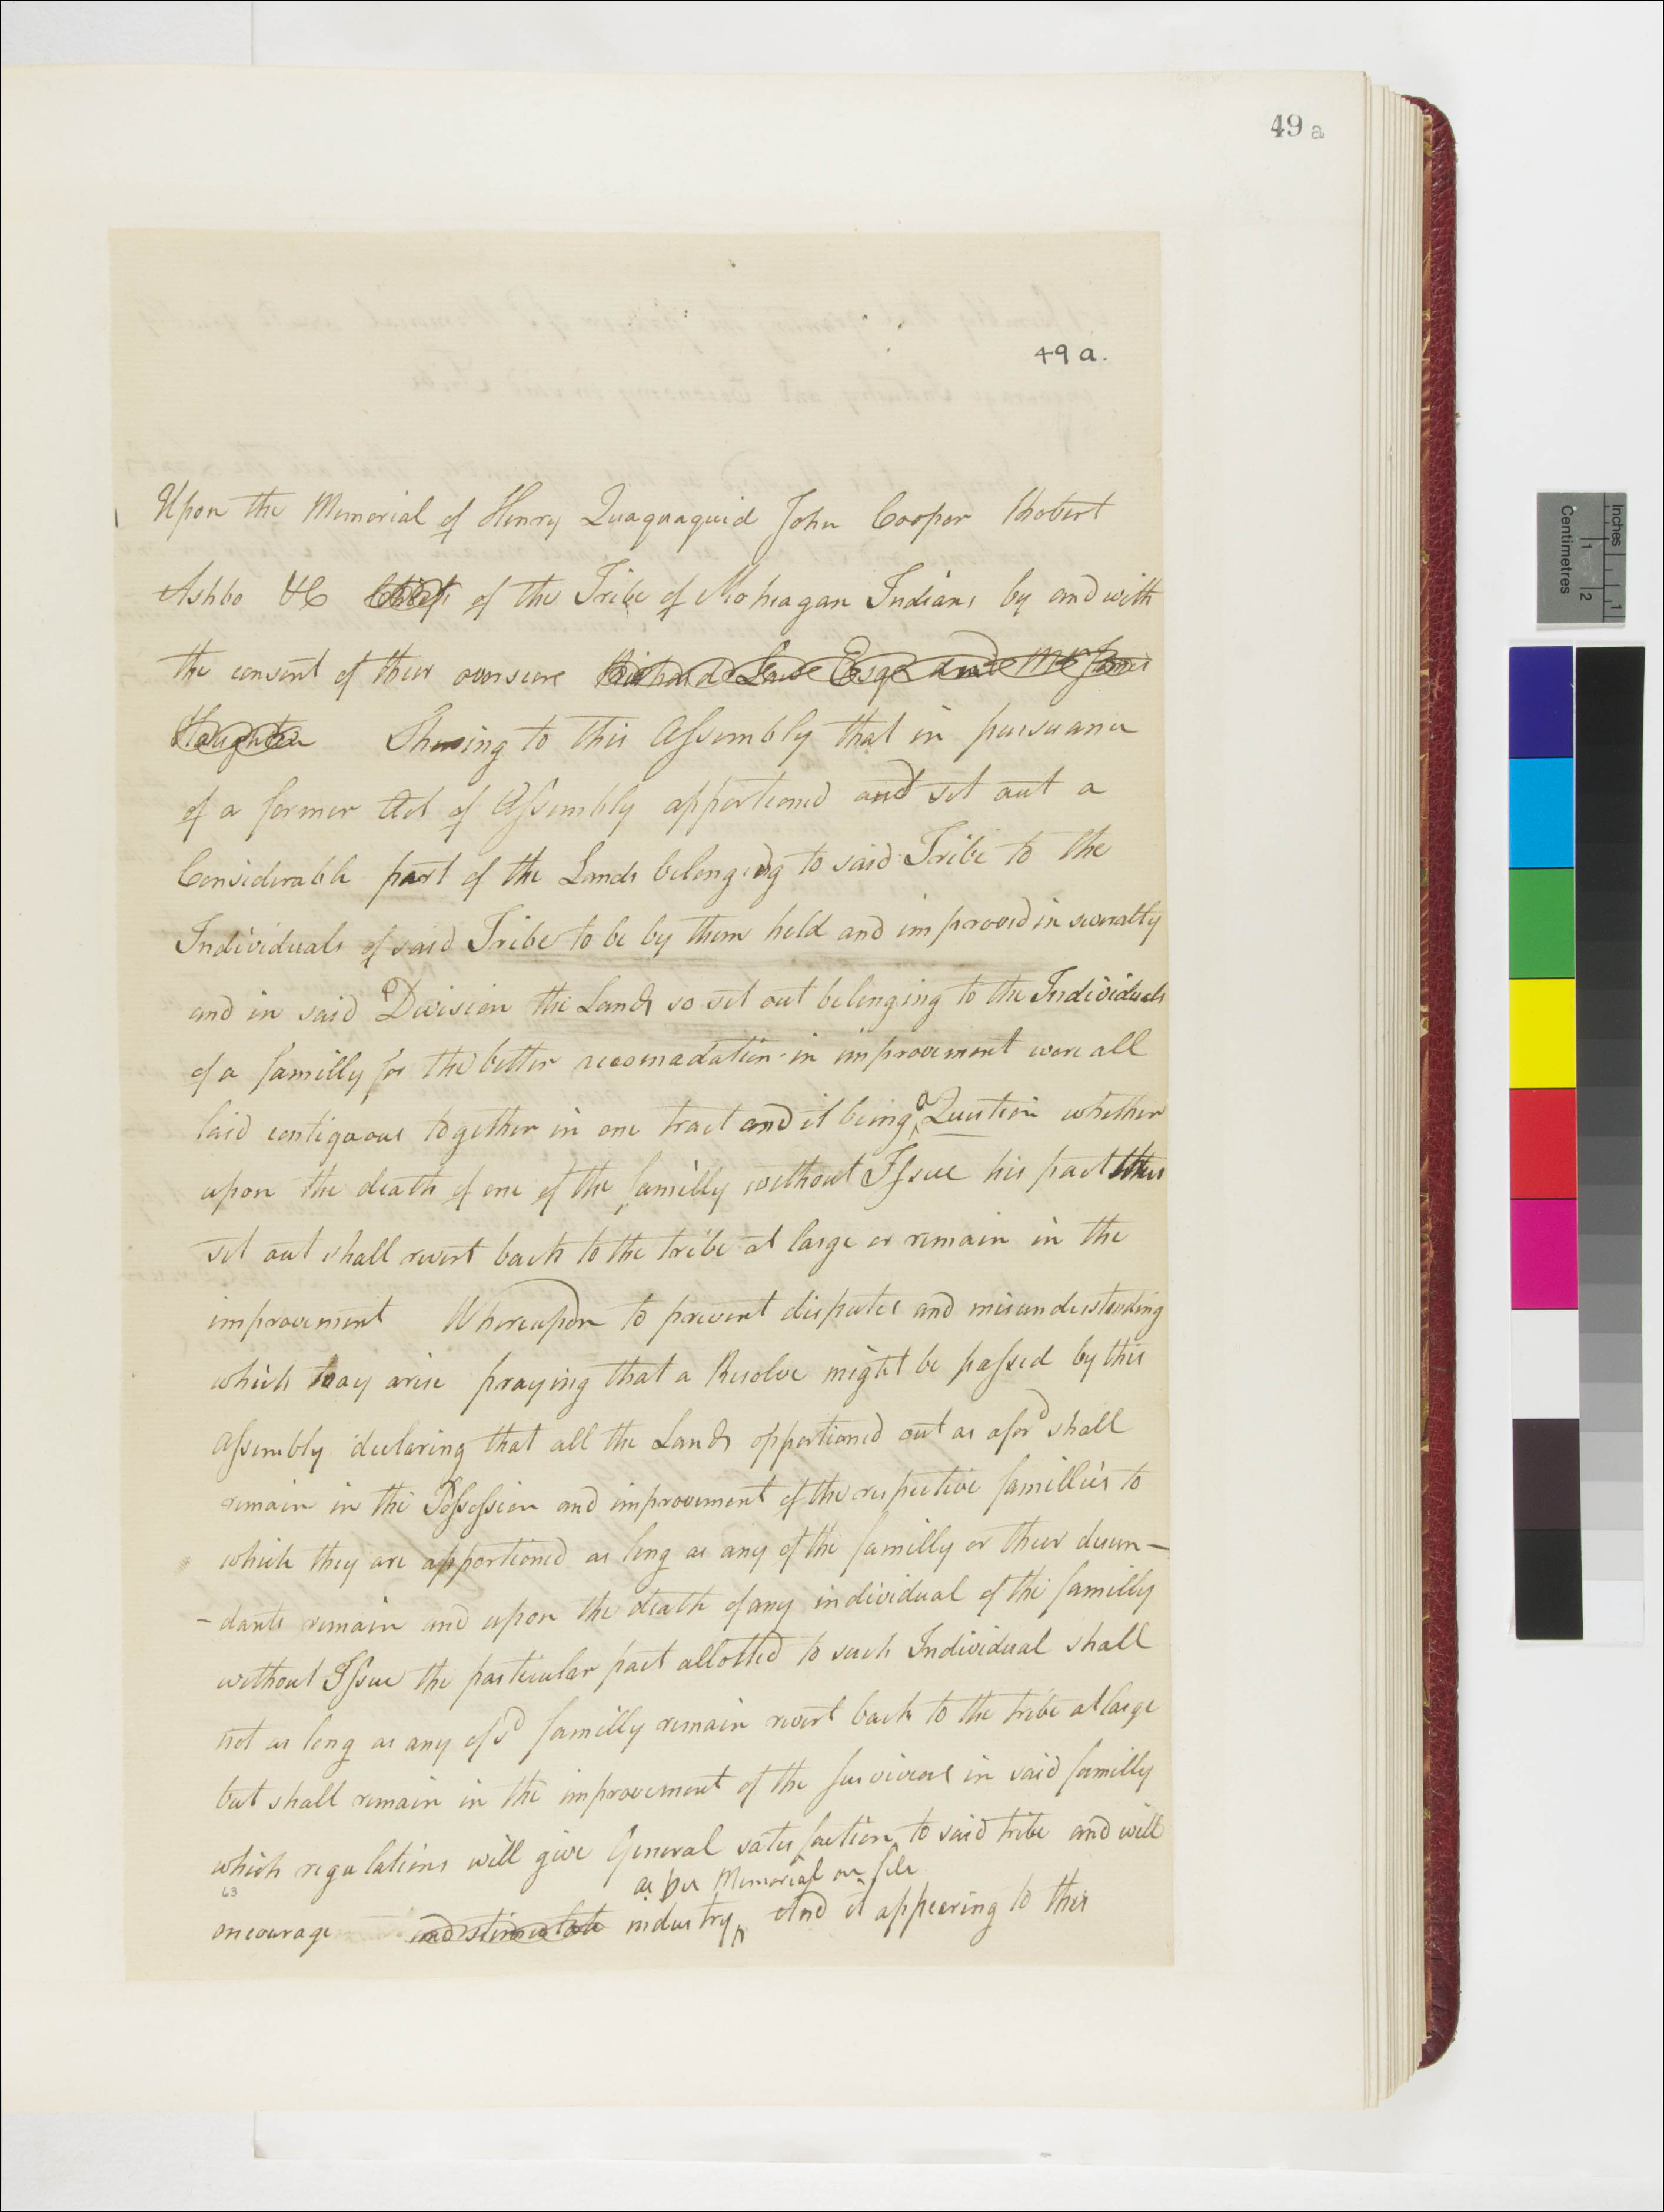 49 a
49 a.
Upon the Memorial of Henry Quaquaquid John Cooper Robert
Ashbo &C Chiefs of the Tribe of Moheagan Indians by and with
the consent of their overseers Richard Law Esqr and Mr James
Haughton Shewing to this Assembly that in pursuance
of a former Act of Assembly apportioned and set out a
Considerable part of the Lands belonging to said Tribe to the
Individuals of said Tribe to be by them held and improved in severalty
and in said Division the Lands so set out belonging to the Individuals
of a familly for the better accomadation in improvement were all
laid contiguous together in one tract and it being a Question whether
upon the death of one of the familly without Issue his part thus
set out shall revert back to the tribe at large or remain in the
improvement Whereupon to prevent disputes and misunderstanding
which may arise praying that a Resolve might be passed by this
Assembly declaring that all the Lands apportioned out as aford shall
remain in the Possession and improvement of the respective famillies to
which they are apportioned as long as any of the familly or their decen-
-dants remain and upon the death of any individual of the familly
without Issue the particular part allotted to such Individual shall
not as long as any of sd familly remain revert back to the tribe at large
but shall remain in the improvement of the survivors in said familly
which regulations will give General satisfaction to said tribe and will
63
as per Memorial on file
encourage and stimulate industry, And it appearing to this
Inches
1
Centimetres
1
2